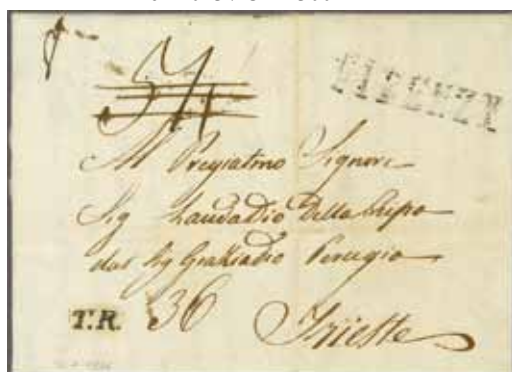 FIRENZE
Al Pregiatmo Signore
Sig Laudadio Della Ripa
dal Sig Graziadio Perugia
T.R. 36 Trieste